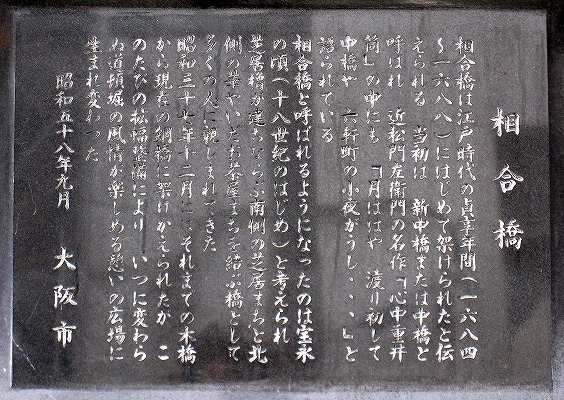 相合橋
相合橋は江戸時代の貞享年間(一六八四
〜一六八八)にはじめて架けられたと伝
えられる 当初は 新中橋または中橋と
呼ばれ 近松門左衛門の名作「心中重井
筒」の中にも『月ははや 渡り初して
中橋や 六軒町の小夜がうし、、、』と
語られている
相合橋と呼ばれるようになったのは宝永
の頃(十八世紀のはじめ)と考えられ
芝居櫓が建ちならぶ南側の芝居まちと北
側の華やいだお茶屋まちを結ぶ橋として
多くの人に親しまれてきた
昭和三十七年十二月にはそれまでの木橋
から現在の鋼橋に架けかえられたが こ
のたびの拡幅整備により いつに変わら
ぬ道頓堀の風情が楽しめる憩いの広場に
生まれ変わった
昭和五十八年九月 大阪市